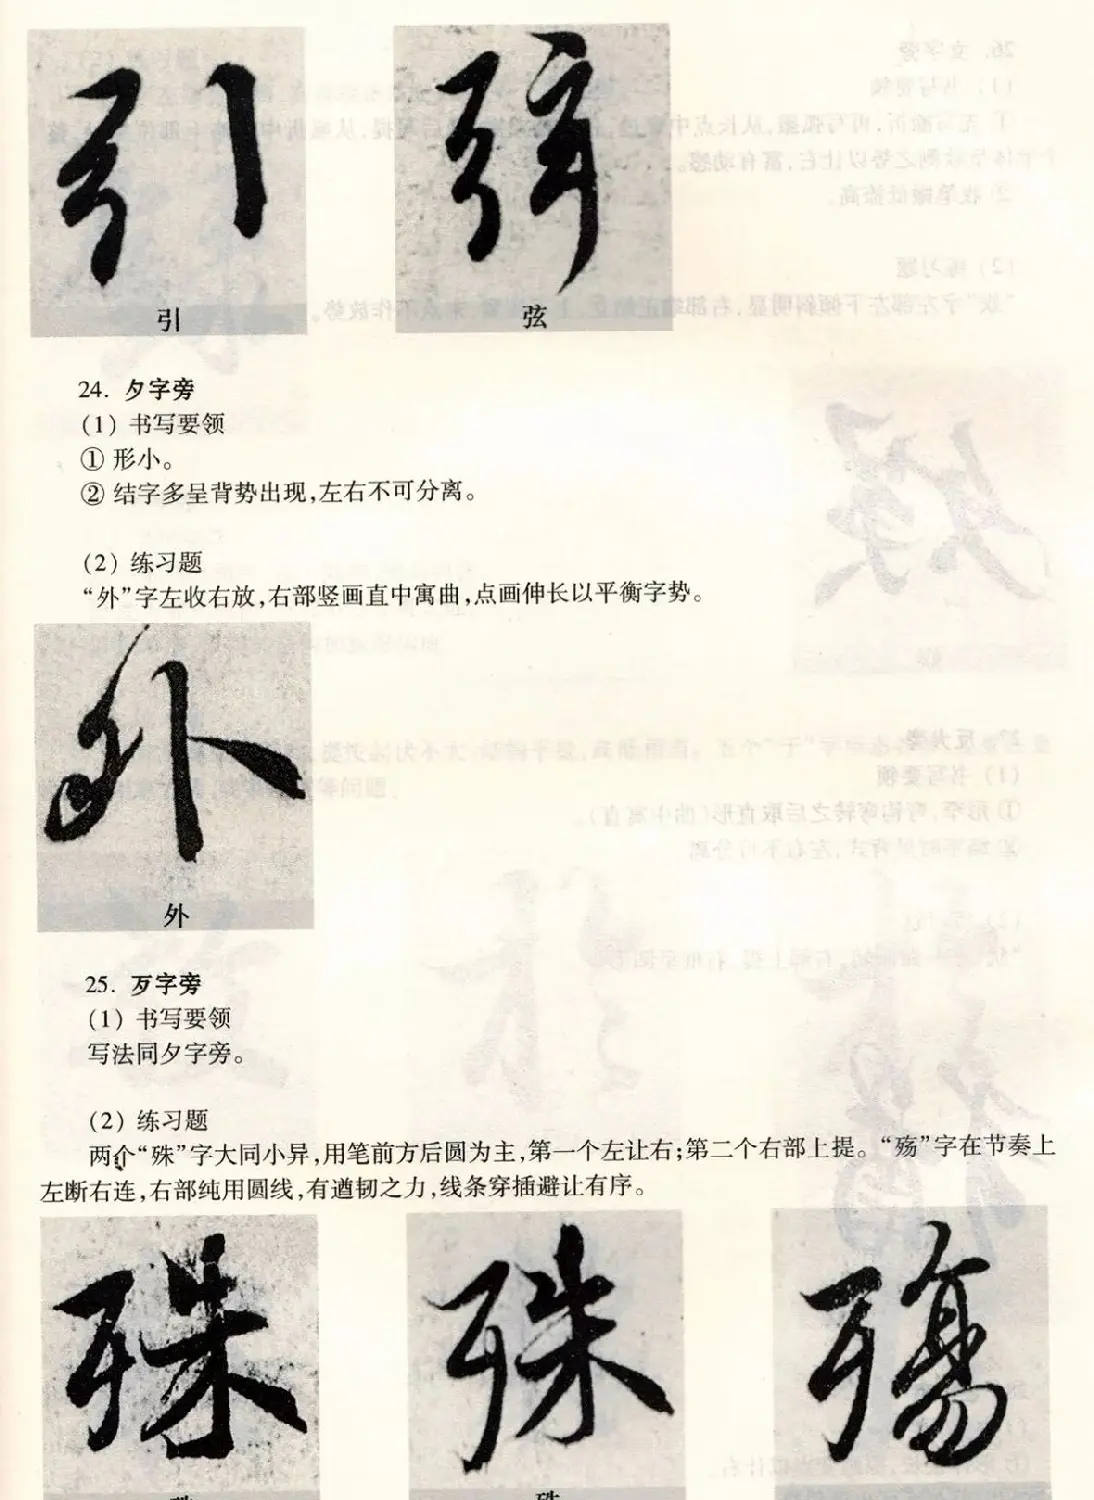 引 弦
24. 歹字旁
(1) 书写要领
① 形小。
② 结字多呈背势出现,左右不可分离。
(2) 练习题
“外”字左收右放,右部竖画直中寓曲,点画伸长以平衡字势。
外
25. 歹字旁
(1) 书写要领
写法同夕字旁。
(2) 练习题
两个“殊”字大同小异,用笔前方后圆为主,第一个左让右;第二个右部上提。“殇”字在节奏上
左断右连,右部纯用圆线,有遒韧之力,线条穿插避让有序。